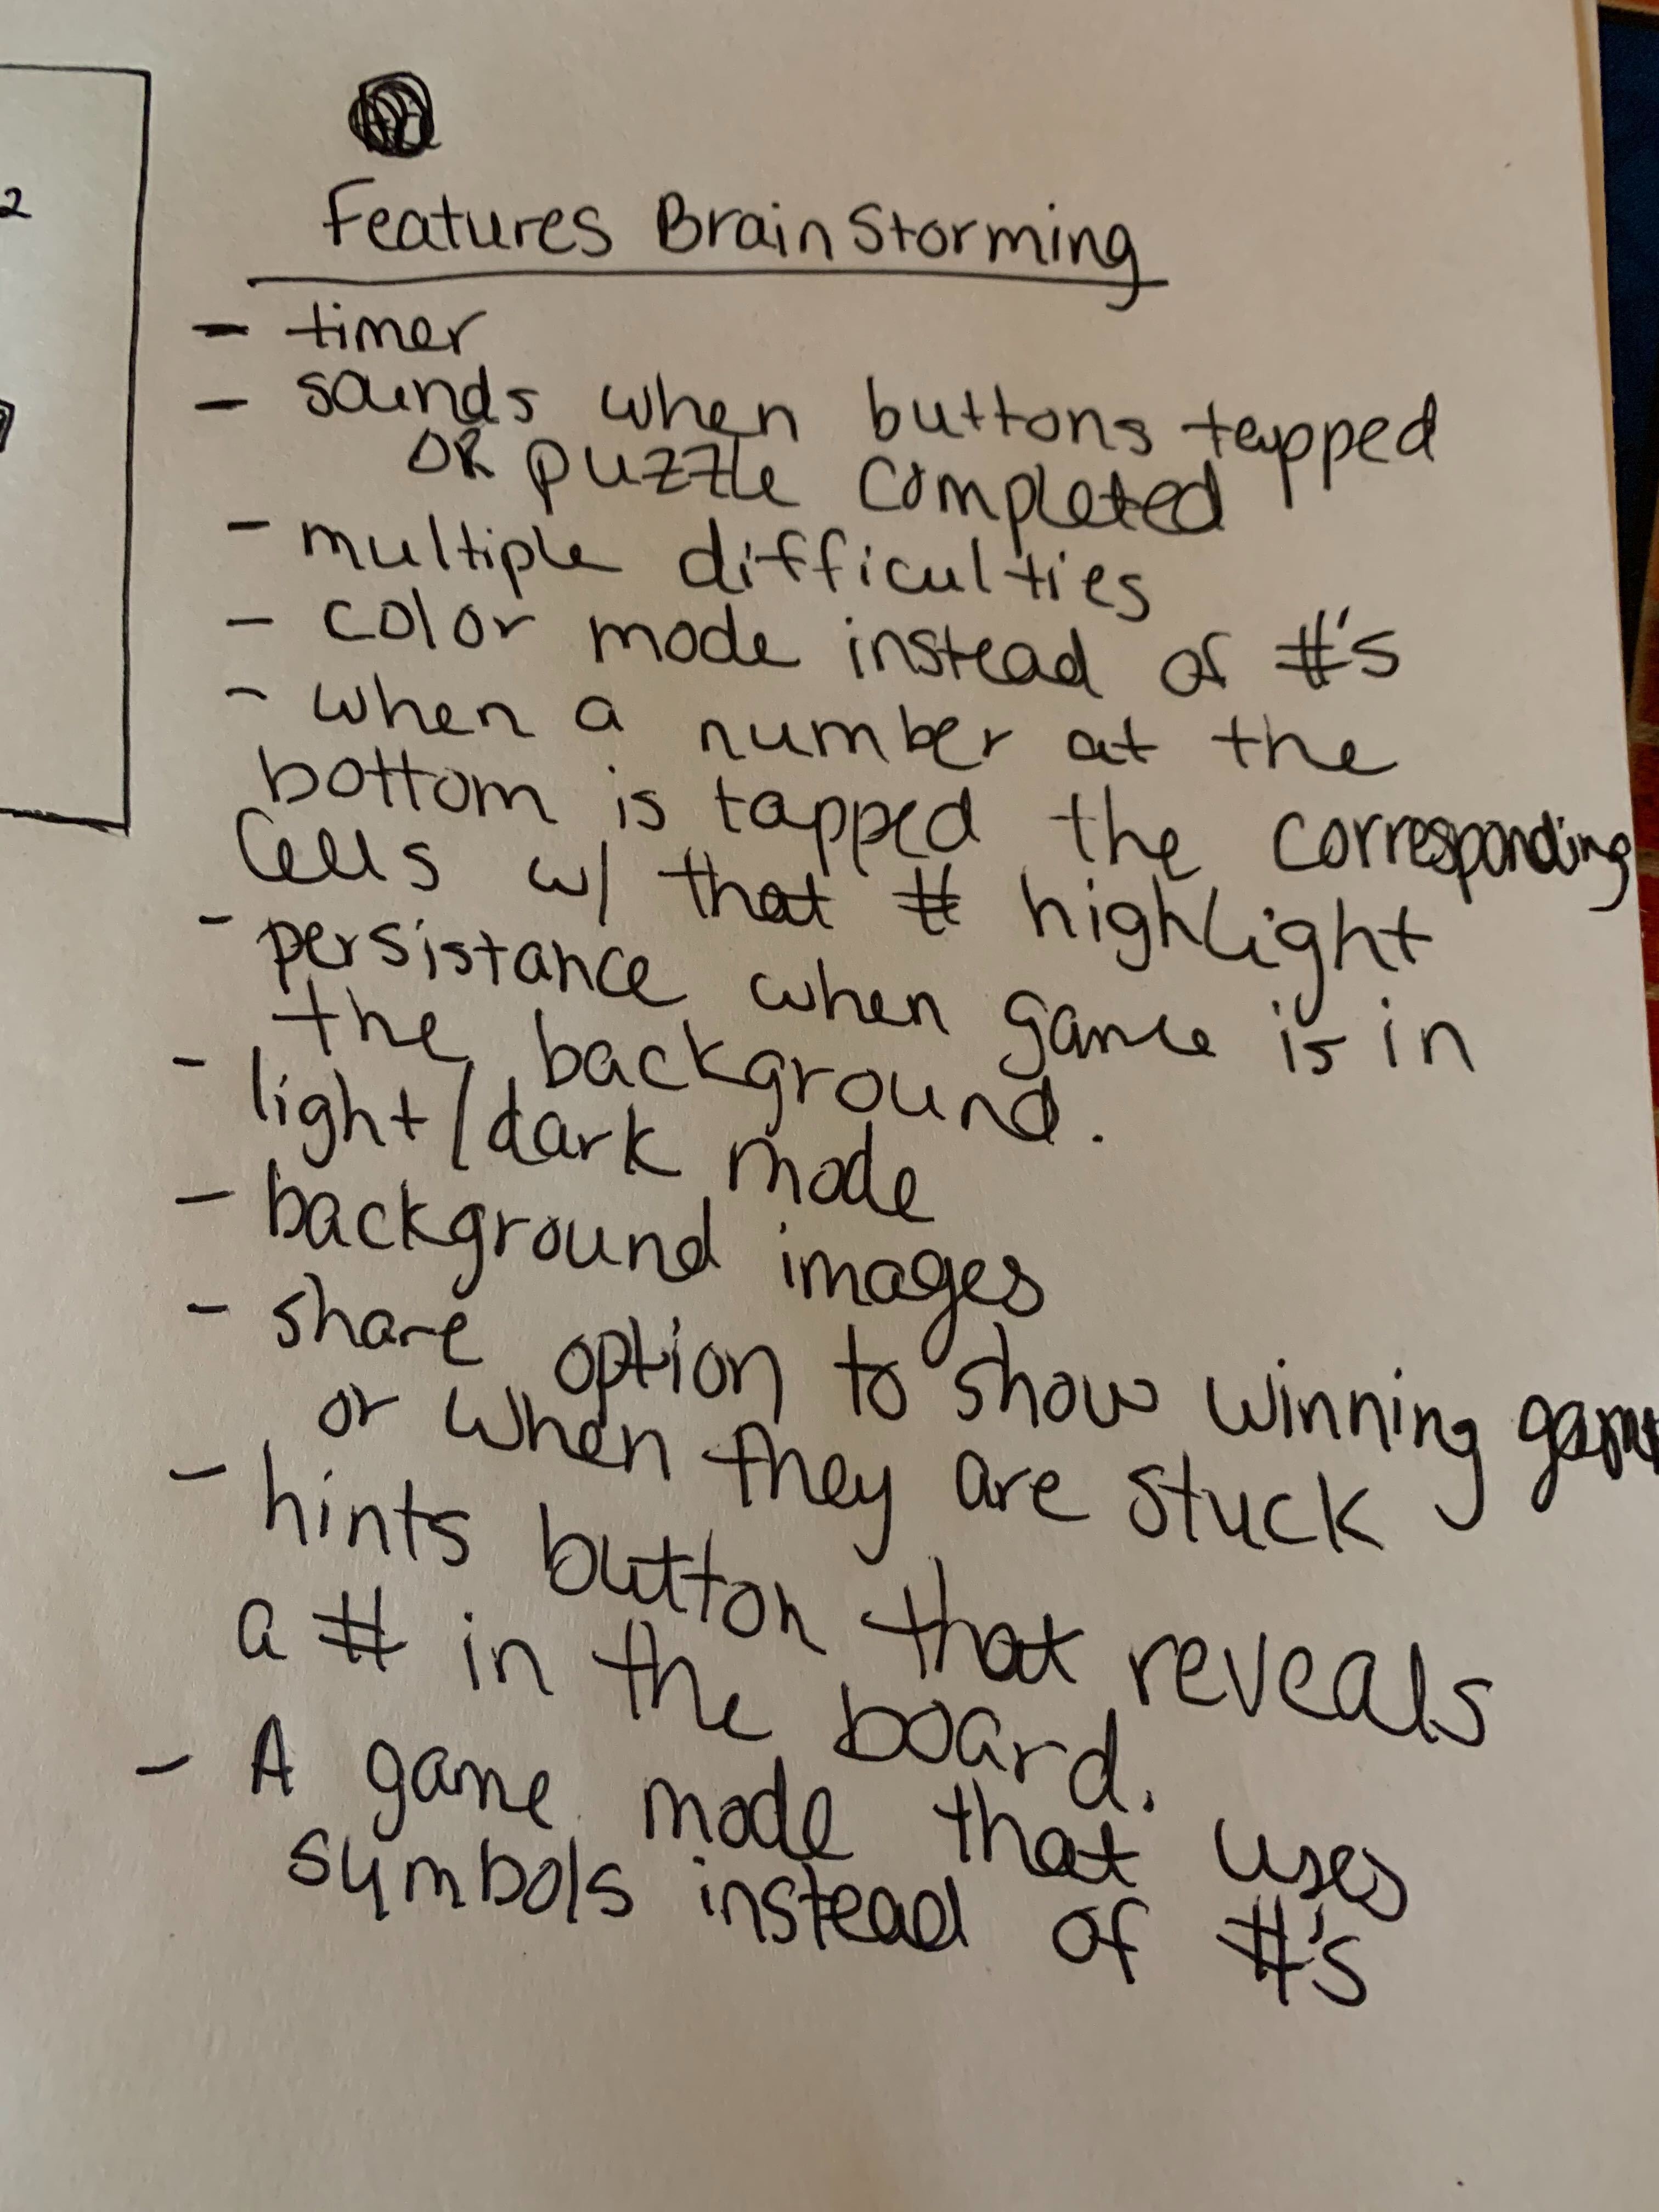 2
Features BrainStorming
- timer
- sounds when buttons tapped
OR puzzle completed
- multiple difficulties
- color mode instead of #'s
- when a number at the
bottom is tapped the corresponding
Cells w/ that # highlight
- persistance when game is in
the background.
- light/dark mode
- background images
- share option to show winning game
or when they are stuck
- hints button that reveals
a # in the board.
- A game mode that uses
symbols instead of #'s